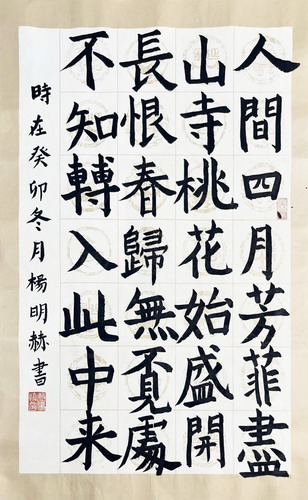 人間四月芳菲盡
山寺桃花始盛開
長恨春歸無覓處
不知轉入此中来
時在癸卯冬月楊明赫書